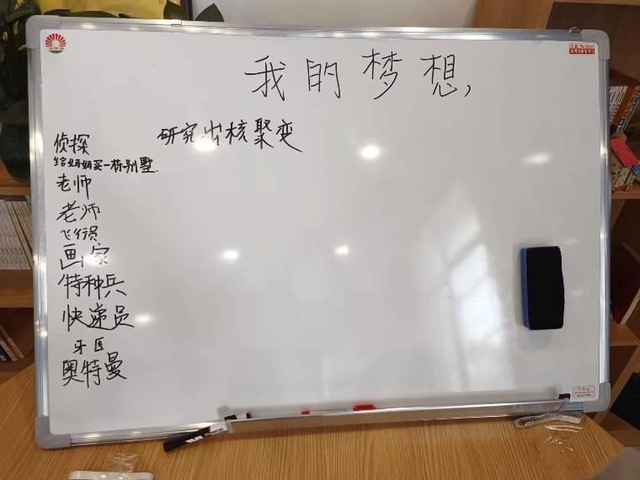 我的梦想,
研究出核聚变
侦探
给妈妈买一栋别墅.
老师
老师
飞行员
画家
特种兵
快递员
牙医
奥特曼